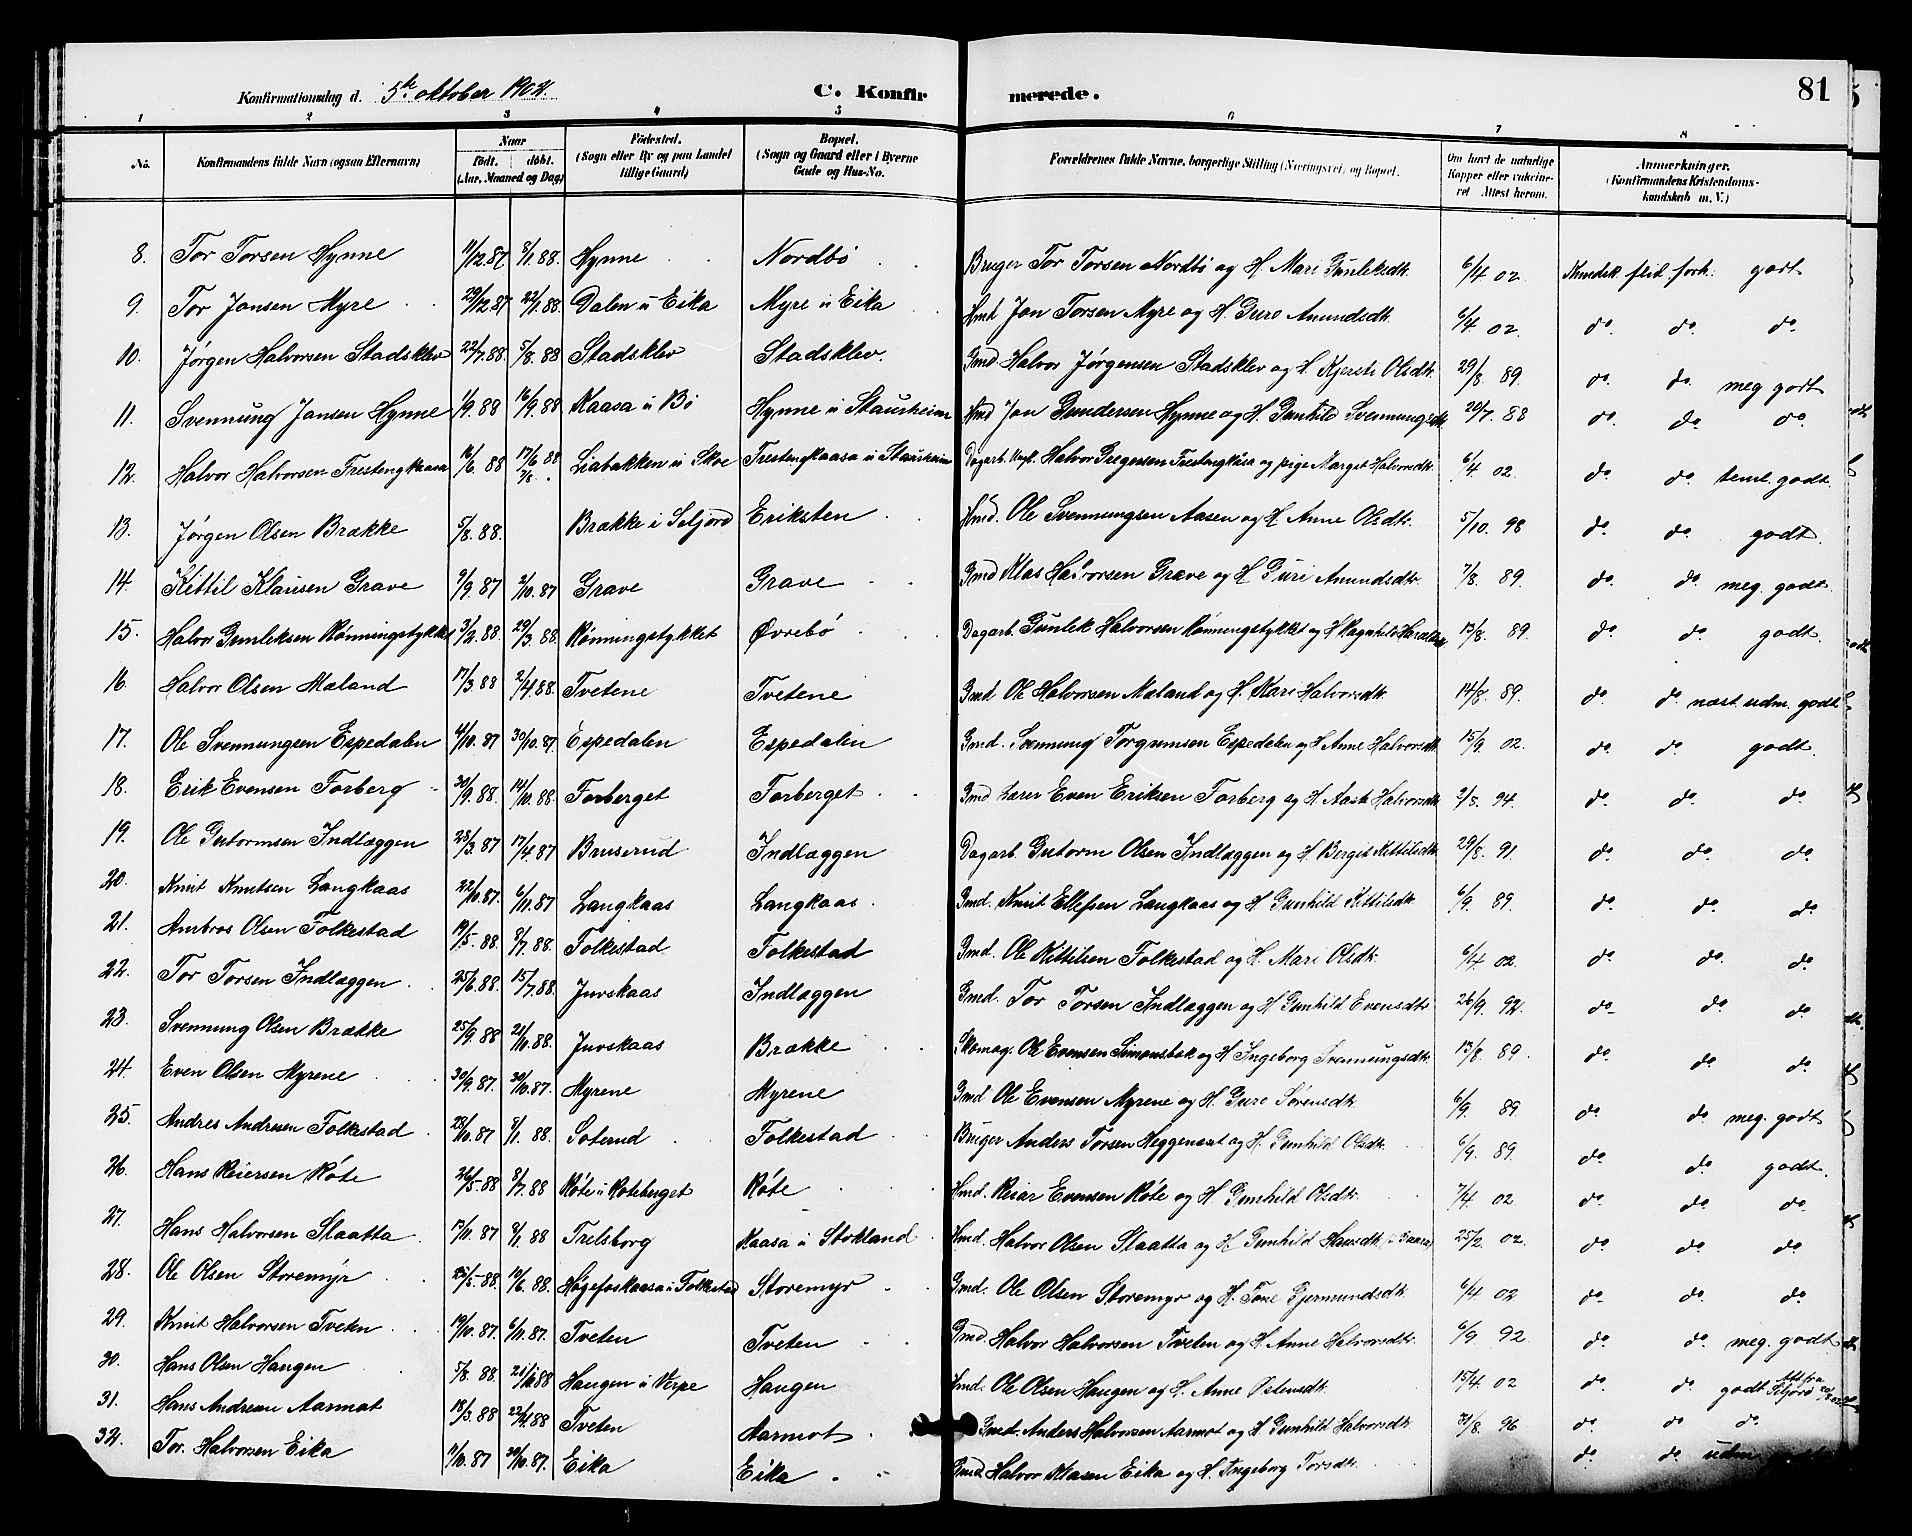 Konfirmationsdag d. 5te oktober 1902. C. Konfirmerede. 81
1 2 3 4 5 6 7 8
No. Konfirmandens fulde Navn (ogsaa Efternavn) Naar födt. döbt. (Aar, Maaned og Dag) Födested. (Sogn eller By og paa Landet tillige Gaard) Bopæl. (Sogn og Gaard eller i Byerne Gade og Hus-No. Forældrenes fulde Navne, borgerlige Stilling (Næringsvei) og Bopæl. Om havt de naturlige Kopper eller vakcineret Attest herom. Anmærkninger. (Konfirmandens Kristendomskundskab m. V.)
8. Tor Torsen Hynne 11/12.87 8/1.88. Hynne Nordbö Bruger Tor Torsen Nordbö og H. Mari Gunleksdtr. 6/4 02 Kundsk. flid forh. godt
9. Tor Jonsen Myre 29/12.87 22/1.88 Dalen u Eika Myre u Eika Hmd Jon Torsen Myre og H. Guro Amundsdtr. 6/4 02. do. do. do.
10. Jørgen Halvorsen Stadsklev 22/7.88. 5/8.88 Stadsklev Stadsklev. Gmd. Halvor Jørgensen Stadsklev og H. Kjersti Olsdtr. 29/8. 89. do. do. meg godt
11. Svennung Jonsen Hynne 1/9.88 16/9.88 Kaasa u Bö Hynne u Staurheim Hmd Jon Gundersen Hynne og H. Gunhild Svennungsdtr. 20/7. 88 do. do. do.
12. Halvor Halvorsen Trestengkaasa 16/6.88 17/6 88 7/8. Liabakken u Skoe Trestengkaasa u Staurheim Dagarb. Ungk. Halvor Gregersen Trestengkåsa og pige Margit Halvorsdtr. 6/4 02. do. do. teml. godt.
13. Jørgen Olsen Brække 5/8.88. Brække i Seljord Eriksten Hmd. Ole Svennungsen Aasen og H. Anne Olsdtr. 5/10. 98 do. do. godt.
14. Kittil Klausen Grave 9/9.87 2/10.87 Grave Grave Gmd Klas Halvorsen Grave og H. Guri Amundsdtr. 7/8. 89. do. do. meg. godt.
15. Halvor Gunleksen Rönningstykket 3/2.88. 29/3.88 Rönningstykket Øvrebö Dagarb. Gunlek Halvorsen Rönningstykket og H Ragnhild 13/8. 89. do. do. godt.
16. Halvor Olsen Mæland 17/3 88 2/4 88. Tvetene Tvetene Gmd Ole Halvorsen Mæland og H. Kari Halvorsdtr. 14/8. 89. do. do næst udm. godt.
17. Ole Svennungsen Espedalen 4/10.87 30/10.87 Espedalen Espedalen Gmd. Svennung Torgrimsen Espedalen og H Anne Halvorsdtr. 15/9. 02. do. do. godt.
18. Erik Evensen Forberg 30/9.88. 14/10.88 Forberget Forberget Gmd Lærer Even Eriksen Forberg og H Aaste Halvorsdtr. 2/8. 94. do. do. do.
19. Ole Gutormsen Indlæggen 28/3.87 17/4.87 Bruserud Indlæggen Dagarb. Gutorm Olsen Indlæggen og H. Bergit Kittilsdtr. 29/8. 91. do. do. do.
20. Knut Knutsen Langkaas 22/10.87. 6/11.87 Langkaas Langkaas. Gmd. Knut Ellefsen Langkaas og H. Gunhild Kittilsdtr. 6/9. 89. do. do. do.
21. Ambros Olsen Folkestad 19/5.88. 8/7.88. Folkestad Folkestad Gmd. Ole Kittilsen Folkestad og H. Mari Olsdtr. 6/4 02. do. do. do.
22. Tor Torsen Indlæggen 25/6.88. 15/7.88. Juvskaas Indlæggen Gmd. Tor Torsen Indlæggen og H. Gunhild Evensdtr. 26/9. 92. do. do. do.
23. Svennung Olsen Brække 25/9.88 21/10.88. Juvskaas Brække Skomag. Ole Evensen Simonsbak og H. Ingeborg Svennungsdtr. 13/8. 89. do. do. do.
24. Even Olsen Myrene 30/9.87. 30/10.87. Myrene Myrene Gmd Ole Evensen Myrene og H. Guro Sörensdtr. 6/9. 89. do. do. meg. godt
25. Andres Andresen Folkestad 28/10.87 8/1. 88. Soterud Folkestad Bruger Anders Torsen Heggenaat og H. Gunhild Olsdtr. 6/9. 89. do. do. godt.
26. Hans Reiersen Röte 26/5.88 8/7.88 Röte u Roteberget Röte Hmd. Reiar Evensen Röte og H Gunhild Olsdtr. 7/4. 02 do. do. do.
27. Hans Halvorsen Slaatta 17/11.87 8/1.88 Trelsborg Kaasa u Stokland Hmd. Halvor Olsen Slaatta og H Gunhild Hansdtr. 25/2. 02. do. do. do.
28. Ole Olsen Storemyr 25/5.88. 10/6.88. Høgefoskaasa u Folkestad Storemyr Gmd. Ole Olsen Storemyr og H. Tone Gjermundsdtr. 6/4 02 do. do. do.
29. Knut Halvorsen Tveten 19/10.87. 6/11.87. Tveten Tveten Gmd. Halvor Halvorsen Tveten og H. Anne Halvorsdtr. 6/9 92 do. do. meg. godt
30. Hans Olsen Haugen 5/8. 88. Haugen u Verpe Haugen Hmd. Ole Olsen Haugen og H. Anne Østensdtr. 15/4. 02 do. do. godt Att fra Seljord
31. Hans Andresen Aarmot 18/3.88 22/4.88 Tveten Aarmot Gmd. Anders Halvorsen Aarmot og H Gunhild Halvorsdtr. 31/8. 96 do. do. do.
32. Tor. Halvorsen Eika 11/10.87 30/10.87. Eika Eika Gmd Halvor Klasen Eika og H. Ingeborg Torsdtr. do. do. udm godt